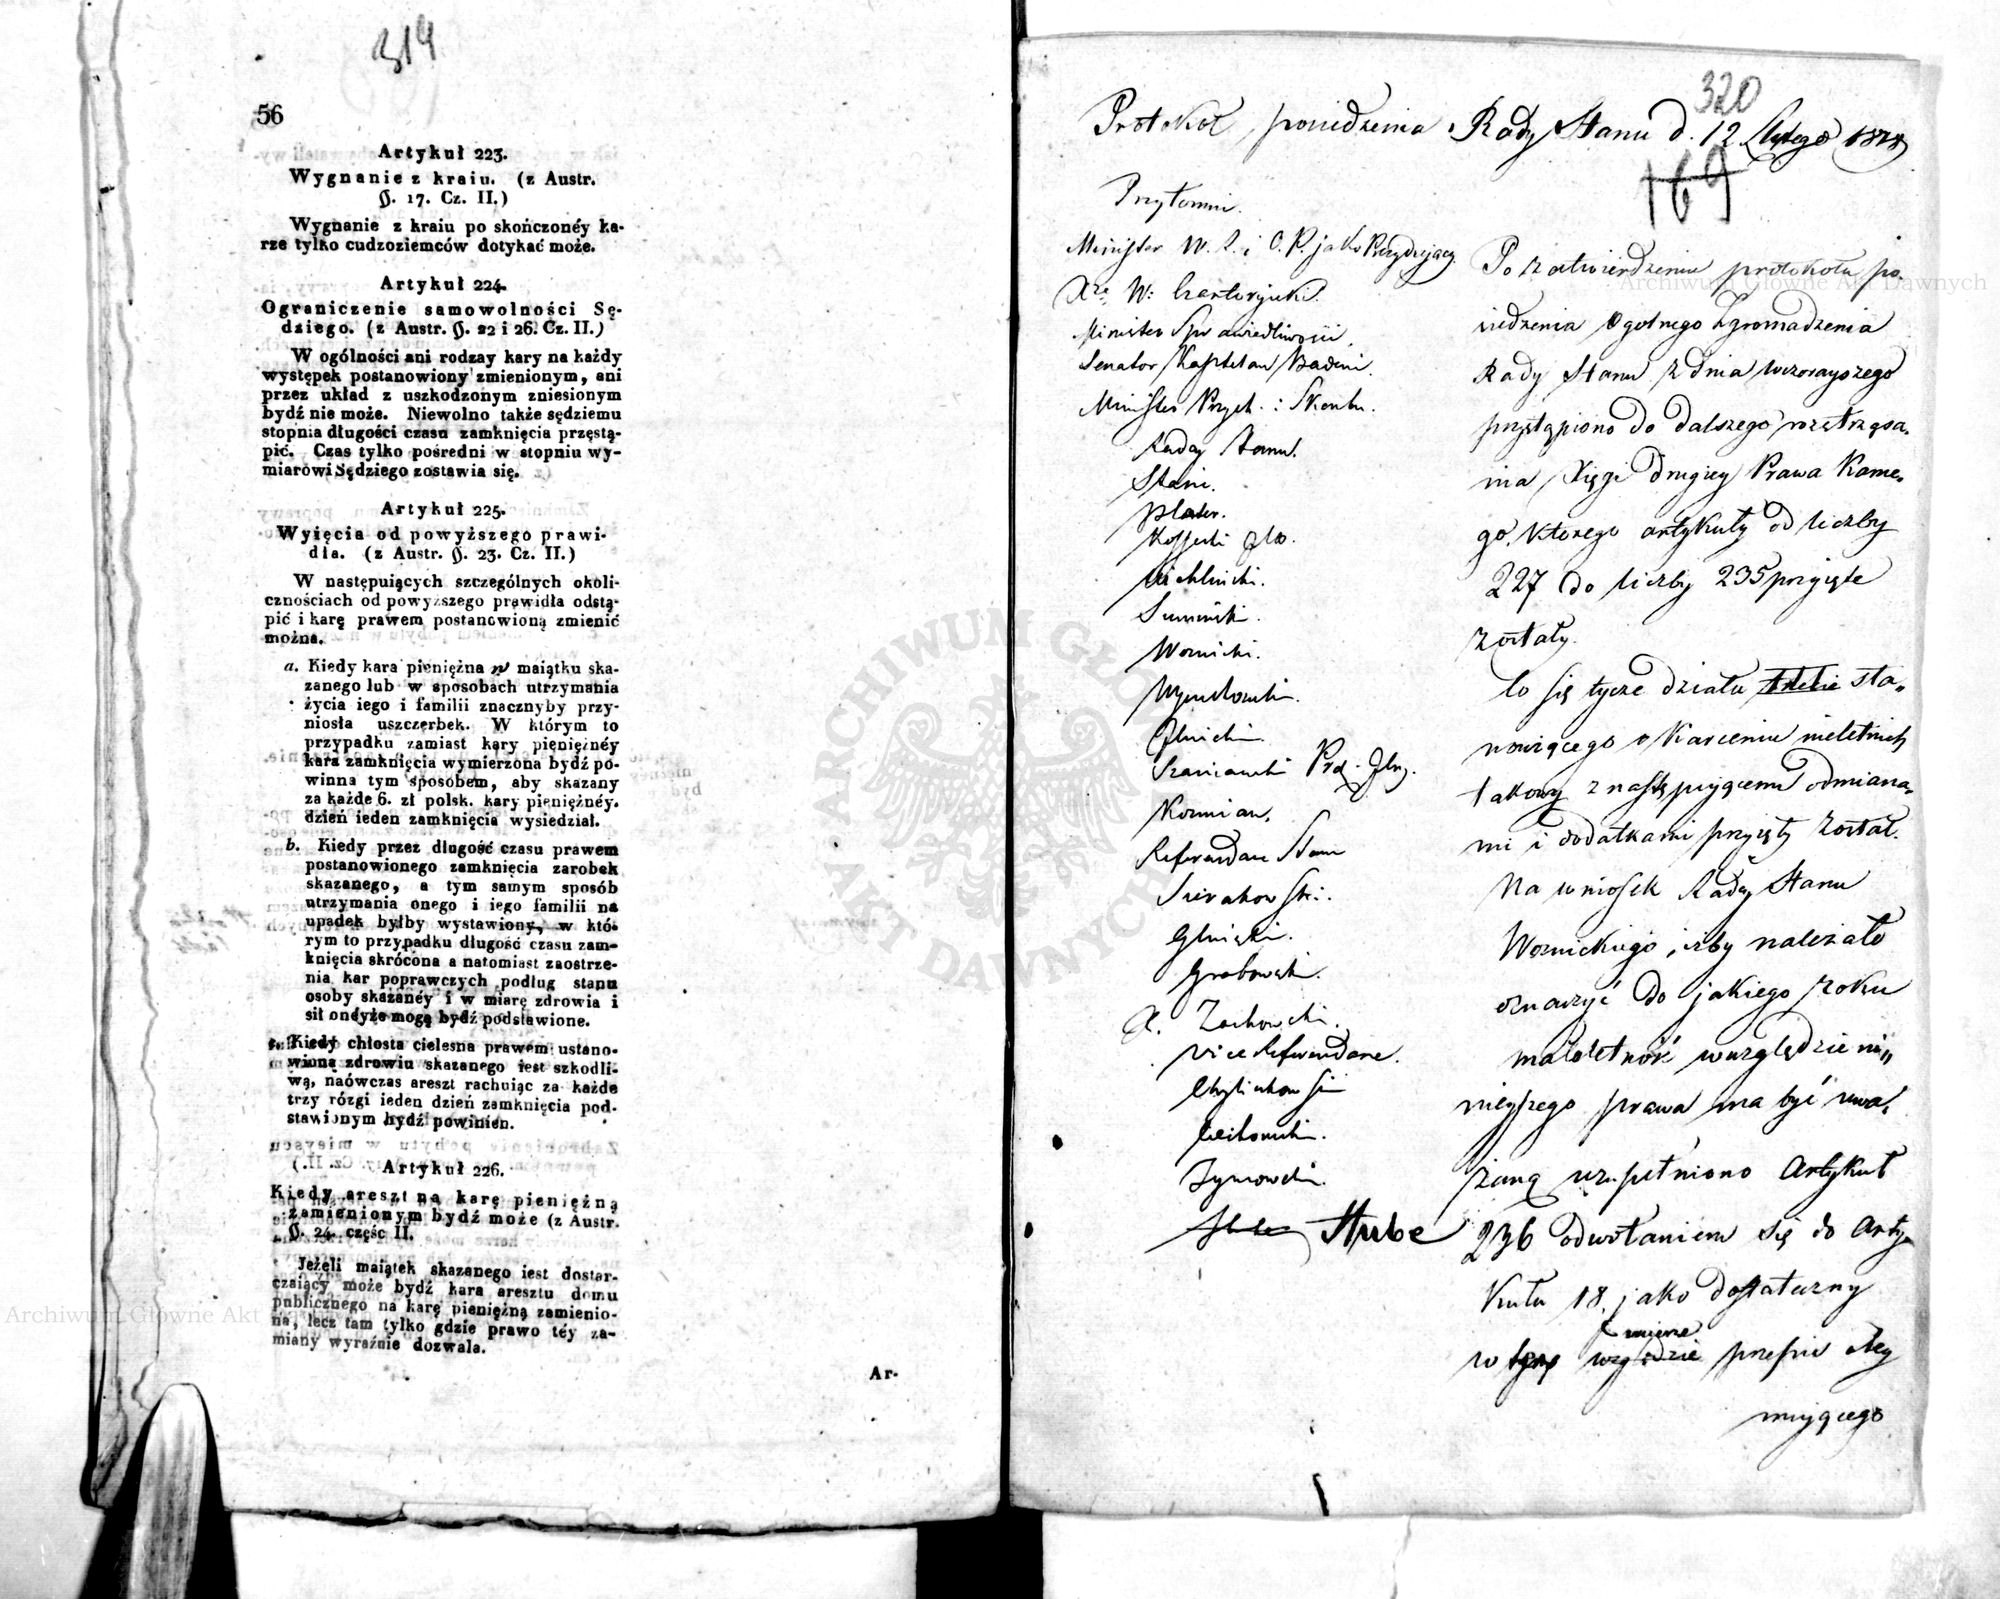 319
56
Artykuł 223.
Wygnanie z kraiu. (z Austr.
§. 17. Cz. II.)
Wygnanie z kraiu po skończonéy ka-
rze tylko cudzoziemców dotykać może.
Artykuł 224.
Ograniczenie samowolności Sę-
dziego. (z Austr. §. 22 i 26. Cz. II.)
W ogólności ani rodzay kary na każdy
występek postanowiony zmienionym, ani
przez układ z uszkodzonym zniesionym
bydź nie może. Niewolno także sędziemu
stopnia długości czasu zamknięcia przęstą-
pić. Czas tylko pośredni w stopniu wy-
miarowi Sędziego zostawia się.
Artykuł 225.
Wyięcia od powyższego prawi-
dła. (z Austr. §. 23. Cz. II.)
W następuiących szczególnych okoli-
cznościach od powyższego prawidła odstą-
pić i karę prawem postanowioną zmienić
można.
a. Kiedy kara pieniężna w maiątku ska-
zanego lub w sposobach utrzymania
życia iego i familii znacznyby przy-
niosła uszczerbek. W którym to
przypadku zamiast kary pieniężnéy
kara zamknięcia wymierzona bydź po-
winna tym sposobem, aby skazany
za każde 6. zł polsk. kary pieniężnéy.
dzień ieden zamknięcia wysiedział.
b. Kiedy przez długość czasu prawem
postanowionego zamknięcia zarobek
skazanego, a tym samym sposób
utrzymania onego i iego familii na
upadek byłby wystawiony, w któ-
rym to przypadku długość czasu zam-
knięcia skrócona a natomiast zaostrze-
nia kar poprawczych podług stanu
osoby skazanéy i w miarę zdrowia i
sił onéyże mogą bydź podstawione.
Kiedy chłosta cielesna prawem ustano-
wiona zdrowiu skazanego iest szkodli-
wą, naówczas areszt rachuiąc za każde
trzy rózgi ieden dzień zamknięcia pod-
stawionym bydź powinien.
Artykuł 226.
Kiedy areszt na karę pieniężną
zamienionym bydź może (z Austr.
§. 24. częśc II.
Jeżeli maiątek skazanego iest dostar-
czaiący może bydź kara aresztu domu
publicznego na karę pieniężną zamienio-
na, lecz tam tylko gdzie prawo téy za-
miany wyraźnie dozwala.
Ar-
320
Protokół posiedzenia Rady Stanu d. 12 Lutego
169
Przytomni.
Minister W. R. i O. P. jako Prezydujący.
Xże W:
Minister Sprawiedliwości.
Senator Kasztelan Badeni.
Minister Przych. i Skarbu.
Radcy Stanu.
Plater.
Woznicki.
Koźmian.
Referendarze Stanu
Sierakowski.
Gliński.
Grabowski.
X.
Vice Referendarze.
Hube
Po zatwierdzeniu protokołu po-
siedzenia Ogólnego Zgromadzenia
Rady Stanu z dnia wczorayszego
przystąpiono do dalszego roztrząsa-
nia Xięgi drugiey Prawa Karne-
go, którego artykuły od liczby
227 do liczby 235 przyięte
zostały.
Co się tycze działu sta-
nowiącego o karceniu nieletnich
takowy z następującemi odmiana-
mi i dodatkami przyięty został.
Na wniosek Radcy Stanu
Woznickiego, iżby należało
oznaczyć do jakiego roku
małoletność wwzględzie ni-
nieyszego prawa ma być uwa-
żaną uzupełniono Artykuł
236 odwołaniem się do Arty-
kułu 18. jako dostateczny
mierze
w tym względzie przepis
maiącego
Archiwum Główne Akt Dawnych
Archiwum Główne Akt
ARCHIWUM GŁÓWNE AKT DAWNYCH